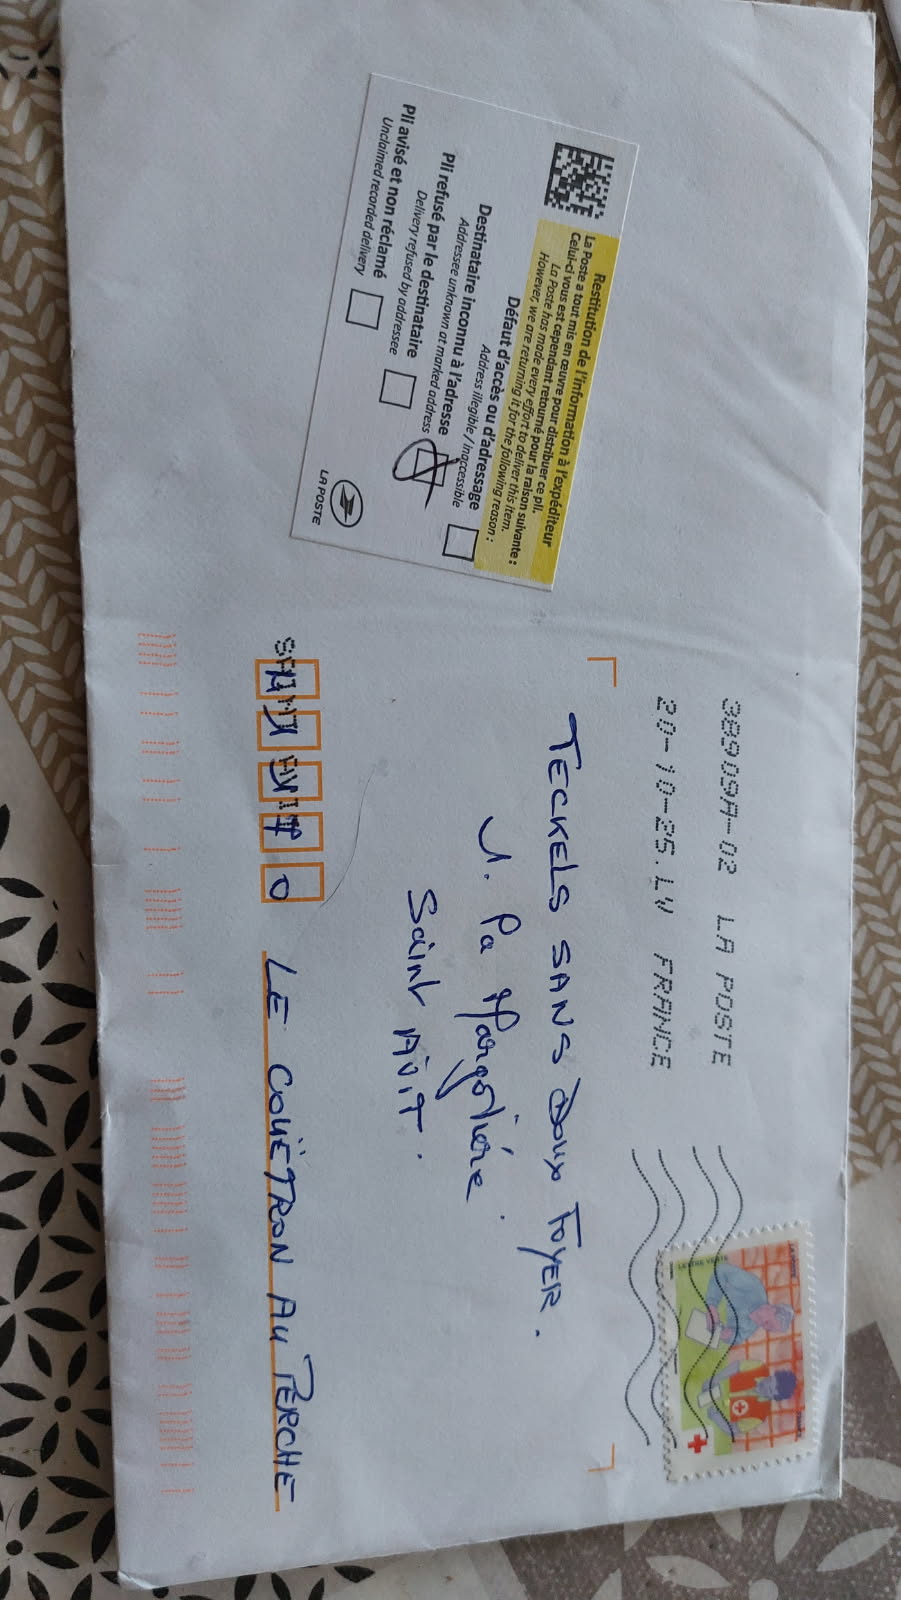 Restitution de l'information à l'expéditeur
La Poste a tout mis en œuvre pour distribuer ce pli.
Celui-ci vous est cependant retourné pour la raison suivante :
La Poste has made every effort to deliver this item.
However, we are returning it for the following reason :
Défaut d'accès ou d'adressage
Address illegible / inaccessible
Destinataire inconnu à l'adresse
Addressee unknown at marked address
Pli refusé par le destinataire
Delivery refused by addressee
Pli avisé et non réclamé
Unclaimed recorded delivery
LA POSTE
38909A-02 LA POSTE
20-10-25.LW FRANCE
LETTRE VERTE
TECKELS SANS Doux FOYER.
Saint AViT.
LE COUËTRON AU PERCHE